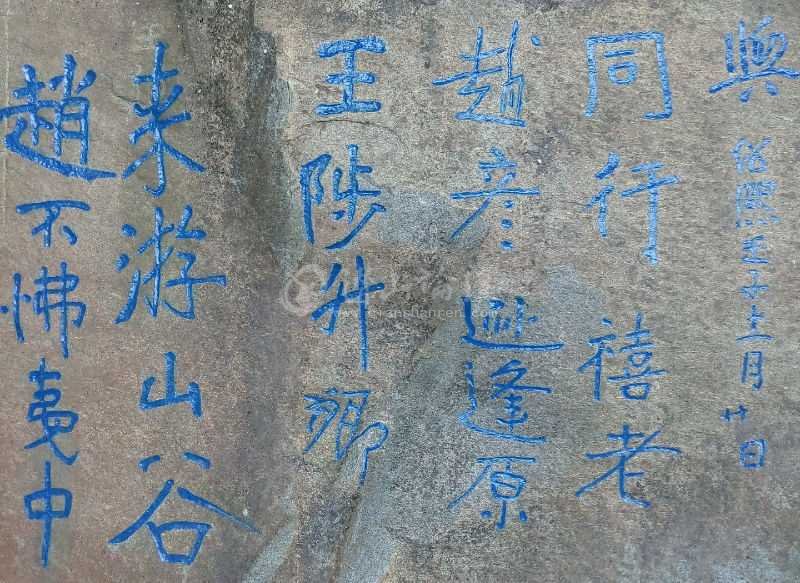 趙不怫夷中
来游山谷
王陟升卿
趙彦逢原
同行禧老
與紹熙壬子月廿日